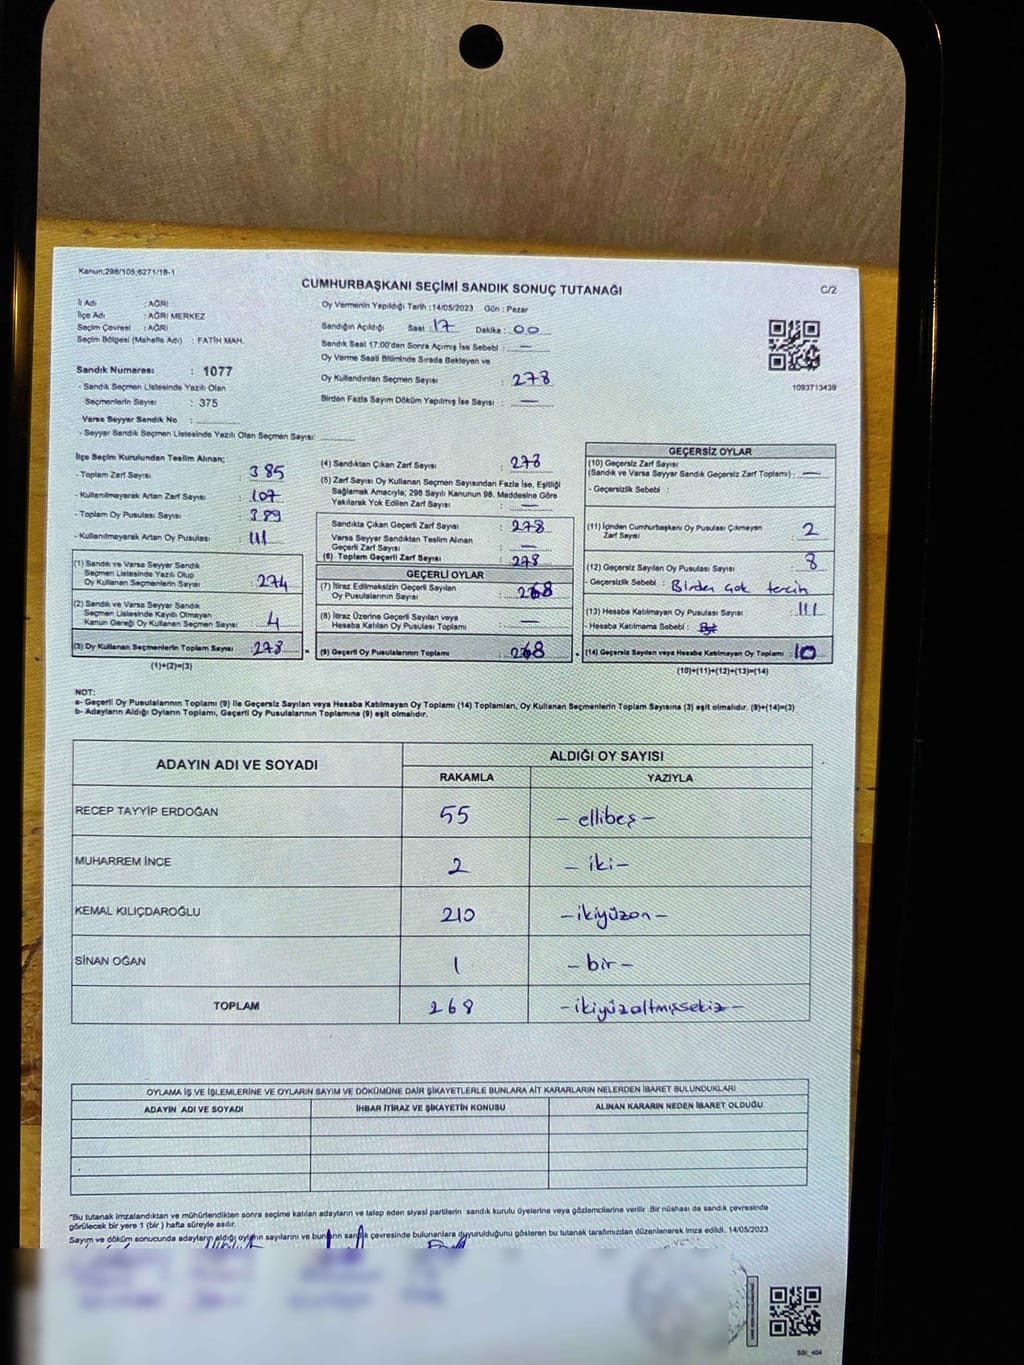 Kanun:298/105;6271/18-1
CUMHURBAŞKANI SEÇİMİ SANDIK SONUÇ TUTANAĞI
C/2
İl Adı : AĞRI
İlçe Adı : AĞRI MERKEZ
Seçim Çevresi : AĞRI
Seçim Bölgesi (Mahalle Adı) : FATİH MAH.
Sandık Numarası : 1077
- Sandık Seçmen Listesinde Yazılı Olan
Seçmenlerin Sayısı : 375
Varsa Seyyar Sandık No :
- Seyyar Sandık Seçmen Listesinde Yazılı Olan Seçmen Sayısı:
Oy Vermenin Yapıldığı Tarih :14/05/2023 Gün : Pazar
Sandığın Açıldığı Saat : 17 Dakika : 00
Sandık Saat 17:00'den Sonra Açılmış İse Sebebi : —
Oy Verme Saati Bitiminde Sırada Bekleyen ve
Oy Kullandırılan Seçmen Sayısı : 278
Birden Fazla Sayım Döküm Yapılmış İse Sayısı : —
1093713439
İlçe Seçim Kurulundan Teslim Alınan;
- Toplam Zarf Sayısı : 385
- Kullanılmayarak Artan Zarf Sayısı : 107
- Toplam Oy Pusulası Sayısı : 389
- Kullanılmayarak Artan Oy Pusulası : 111
(1) Sandık ve Varsa Seyyar Sandık
Seçmen Listesinde Yazılı Olup
Oy Kullanan Seçmenlerin Sayısı : 274
(2) Sandık ve Varsa Seyyar Sandık
Seçmen Listesinde Kayıtlı Olmayan
Kanun Gereği Oy Kullanan Seçmen Sayısı : 4
(3) Oy Kullanan Seçmenlerin Toplam Sayısı : 278
(1)+(2)=(3)
(4) Sandıktan Çıkan Zarf Sayısı : 278
(5) Zarf Sayısı Oy Kullanan Seçmen Sayısından Fazla İse, Eşitliği
Sağlamak Amacıyla; 298 Sayılı Kanunun 98. Maddesine Göre
Yakılarak Yok Edilen Zarf Sayısı : —
Sandıkta Çıkan Geçerli Zarf Sayısı : 278
Varsa Seyyar Sandıktan Teslim Alınan
Geçerli Zarf Sayısı : —
(6) Toplam Geçerli Zarf Sayısı : 278
GEÇERLİ OYLAR
(7) İtiraz Edilmeksizin Geçerli Sayılan
Oy Pusulalarının Sayısı : 268
(8) İtiraz Üzerine Geçerli Sayılan veya
Hesaba Katılan Oy Pusulası Toplamı : —
(9) Geçerli Oy Pusulalarının Toplamı : 268
GEÇERSİZ OYLAR
(10) Geçersiz Zarf Sayısı
(Sandık ve Varsa Seyyar Sandık Geçersiz Zarf Toplamı) : —
- Geçersizlik Sebebi :
(11) İçinden Cumhurbaşkanı Oy Pusulası Çıkmayan
Zarf Sayısı : 2
(12) Geçersiz Sayılan Oy Pusulası Sayısı : 8
- Geçersizlik Sebebi : Birden çok tercih
(13) Hesaba Katılmayan Oy Pusulası Sayısı : 111
- Hesaba Katılmama Sebebi :
(14) Geçersiz Sayılan veya Hesaba Katılmayan Oy Toplamı : 10
(10)+(11)+(12)+(13)=(14)
NOT:
a- Geçerli Oy Pusulalarının Toplamı (9) ile Geçersiz Sayılan veya Hesaba Katılmayan Oy Toplamı (14) Toplamları, Oy Kullanan Seçmenlerin Toplam Sayısına (3) eşit olmalıdır. (9)+(14)=(3)
b- Adayların Aldığı Oyların Toplamı, Geçerli Oy Pusulalarının Toplamına (9) eşit olmalıdır.
ADAYIN ADI VE SOYADI
ALDIĞI OY SAYISI
RAKAMLA YAZIYLA
RECEP TAYYİP ERDOĞAN 55 - ellibeş -
MUHARREM İNCE 2 - iki -
KEMAL KILIÇDAROĞLU 210 - ikiyüzon -
SİNAN OĞAN 1 - bir -
TOPLAM 268 - ikiyüzaltmışsekiz -
OYLAMA İŞ VE İŞLEMLERİNE VE OYLARIN SAYIM VE DÖKÜMÜNE DAİR ŞİKAYETLERLE BUNLARA AİT KARARLARIN NELERDEN İBARET BULUNDUKLARI
ADAYIN ADI VE SOYADI İHBAR İTİRAZ VE ŞİKAYETİN KONUSU ALINAN KARARIN NEDEN İBARET OLDUĞU
"Bu tutanak imzalandıktan ve mühürlendikten sonra seçime katılan adayların ve talep eden siyasi partilerin sandık kurulu üyelerine veya gözlemcilerine verilir. Bir nüshası da sandık çevresinde
görülecek bir yere 1 (bir ) hafta süreyle asılır.
Sayım ve döküm sonucunda adayların aldığı oyların sayılarını ve bunların sandık çevresinde bulunanlara duyurulduğunu gösteren bu tutanak tarafımızdan düzenlenerek imza edildi. 14/05/2023
SSI_404